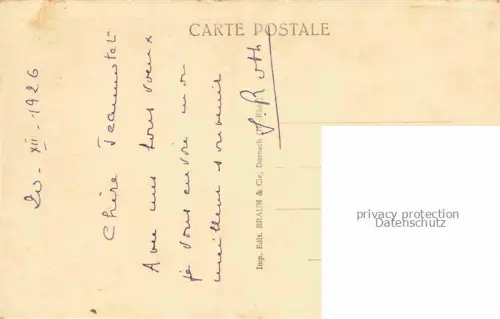 CARTE POSTALE
20 - XII - 1926
Chère Jeannette
Avec mes bons voeux
je vous envoie mon
meilleur souvenir
S. Roth
Imp. Edit. BRAUN & Cie, Dornach
privacy protection
Datenschutz